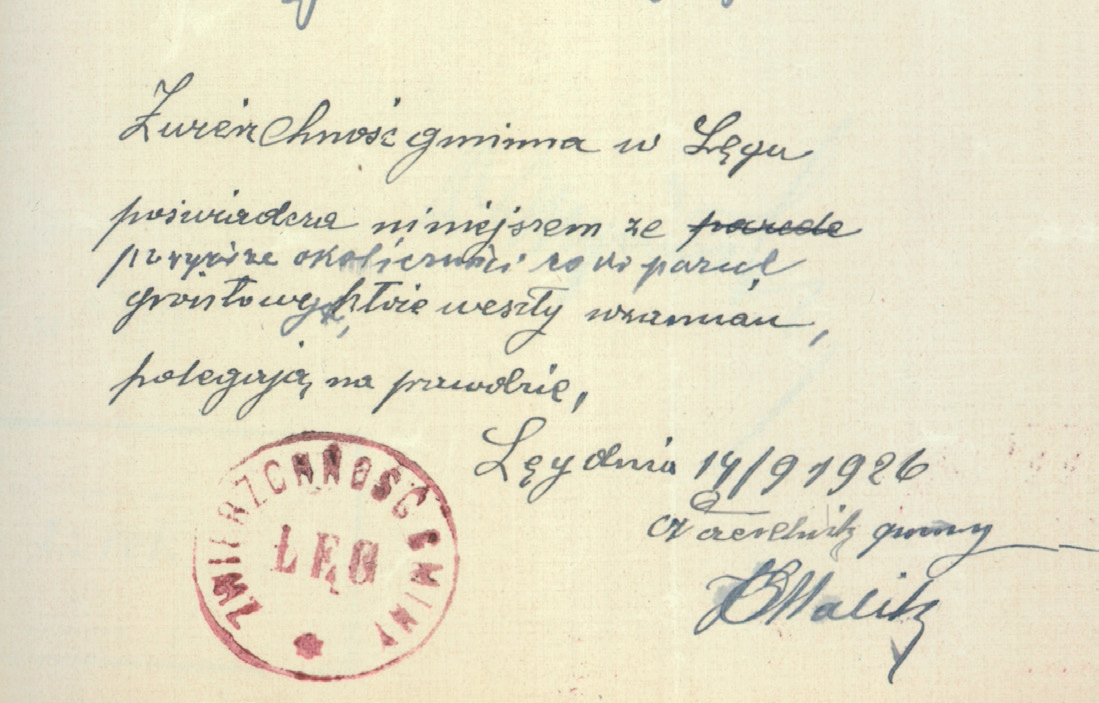 Zwierzchność gminna w Łęgu
poświadcza niniejszem ze parcele
powyższe okoliczności co do parcel
gruntowych, które weszły wzamian,
polegają na prawdzie,
Łęg dnia 14/9 1926
Naczelnik gminy
Malik
ZWIERZCHNOŚĆ GMINY
ŁĘG